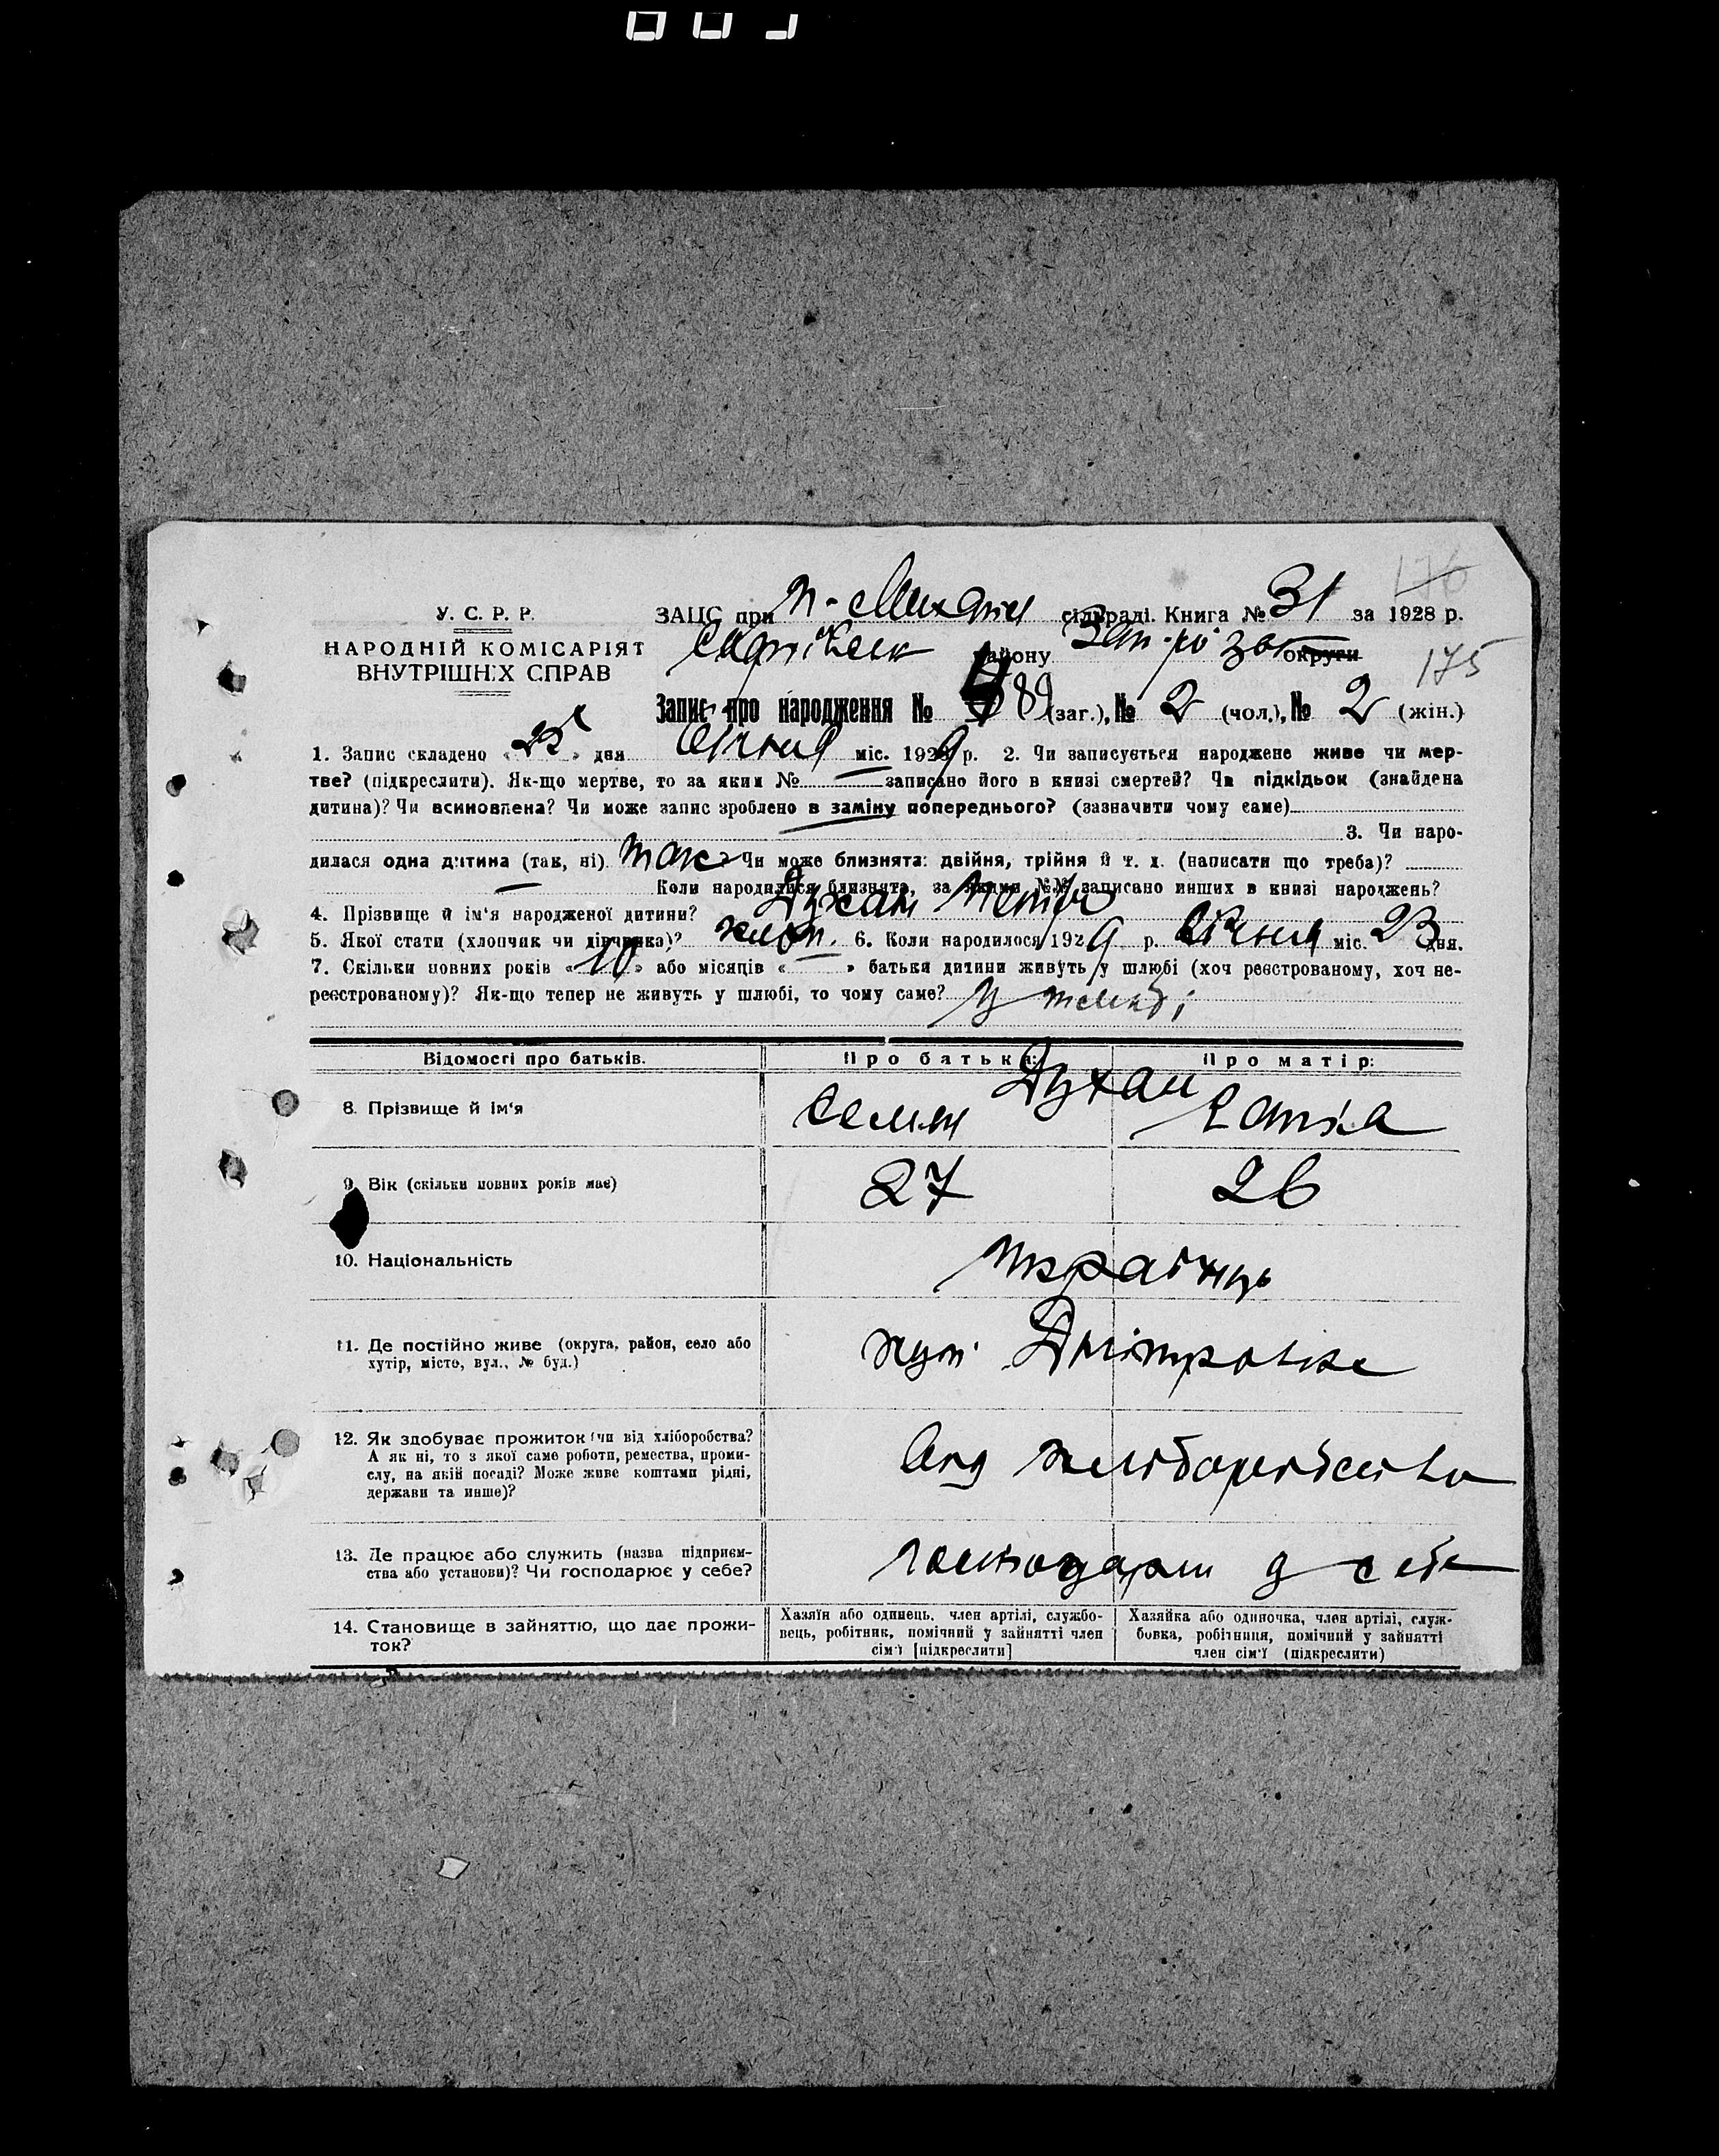 176
У. С. Р. Р.
НАРОДНІЙ КОМІСАРІЯТ
ВНУТРІШНІХ СПРАВ
ЗАЦС при сільраді. Книга № 31 за 1928 р.
району округи 175
Запис про народження № 89 (заг.), № 2 (чол.), № 2 (жін.)
1. Запис складено « 25 » дня січня міс. 1929 р. 2. Чи записується народжене живе чи мер-
тве? (підкреслити). Як-що мертве, то за яким № записано його в книзі смертей? Чи підкідьок (знайдена
дитина)? Чи всиновлена? Чи може запис зроблено в заміну попереднього? (зазначити чому саме)
3. Чи наро-
дилася одна дитина (так, ні) так Чи може близнята: двійня, трійня й т. д. (написати що треба)?
Коли народилися близнята, за якими №№ записано инших в книзі народжень?
4. Прізвище й ім'я народженої дитини? Духан Петро
5. Якої стати (хлопчик чи дівчинка)? хлоп. 6. Коли народилося 1929 р. січня міс. 23 дня.
7. Скільки повних років « 10 » або місяців « » батьки дитини живуть у шлюбі (хоч реєстрованому, хоч не-
реєстрованому)? Як-що тепер не живуть у шлюбі, то чому саме? у шлюбі
Відомості про батьків. Про батька: Про матір:
8. Прізвище й ім'я Духан
Семен
9. Вік (скільки повних років має) 27 26
10. Національність україпць
11. Де постійно живе (округа, район, село або
хутір, місто, вул., № буд.) хут. Дмітровка
12. Як здобуває прожиток (чи від хліборобства?
А як ні, то з якої саме роботи, ремества, проми-
слу, на якій посаді? Може живе коштами рідні,
держави та инше)? від хліборобства
13. Де працює або служить (назва підприєм-
ства або установи)? Чи господарює у себе? господарш у себе
14. Становище в зайняттю, що дає прожи-
ток?
Хазяїн або одинець, член артілі, службо-
вець, робітник, помічний у зайнятті член
сім'ї [підкреслити]
Хазяйка або одиночка, член артілі, служ-
бовка, робітниця, помічний у зайнятті
член сім'ї (підкреслити)